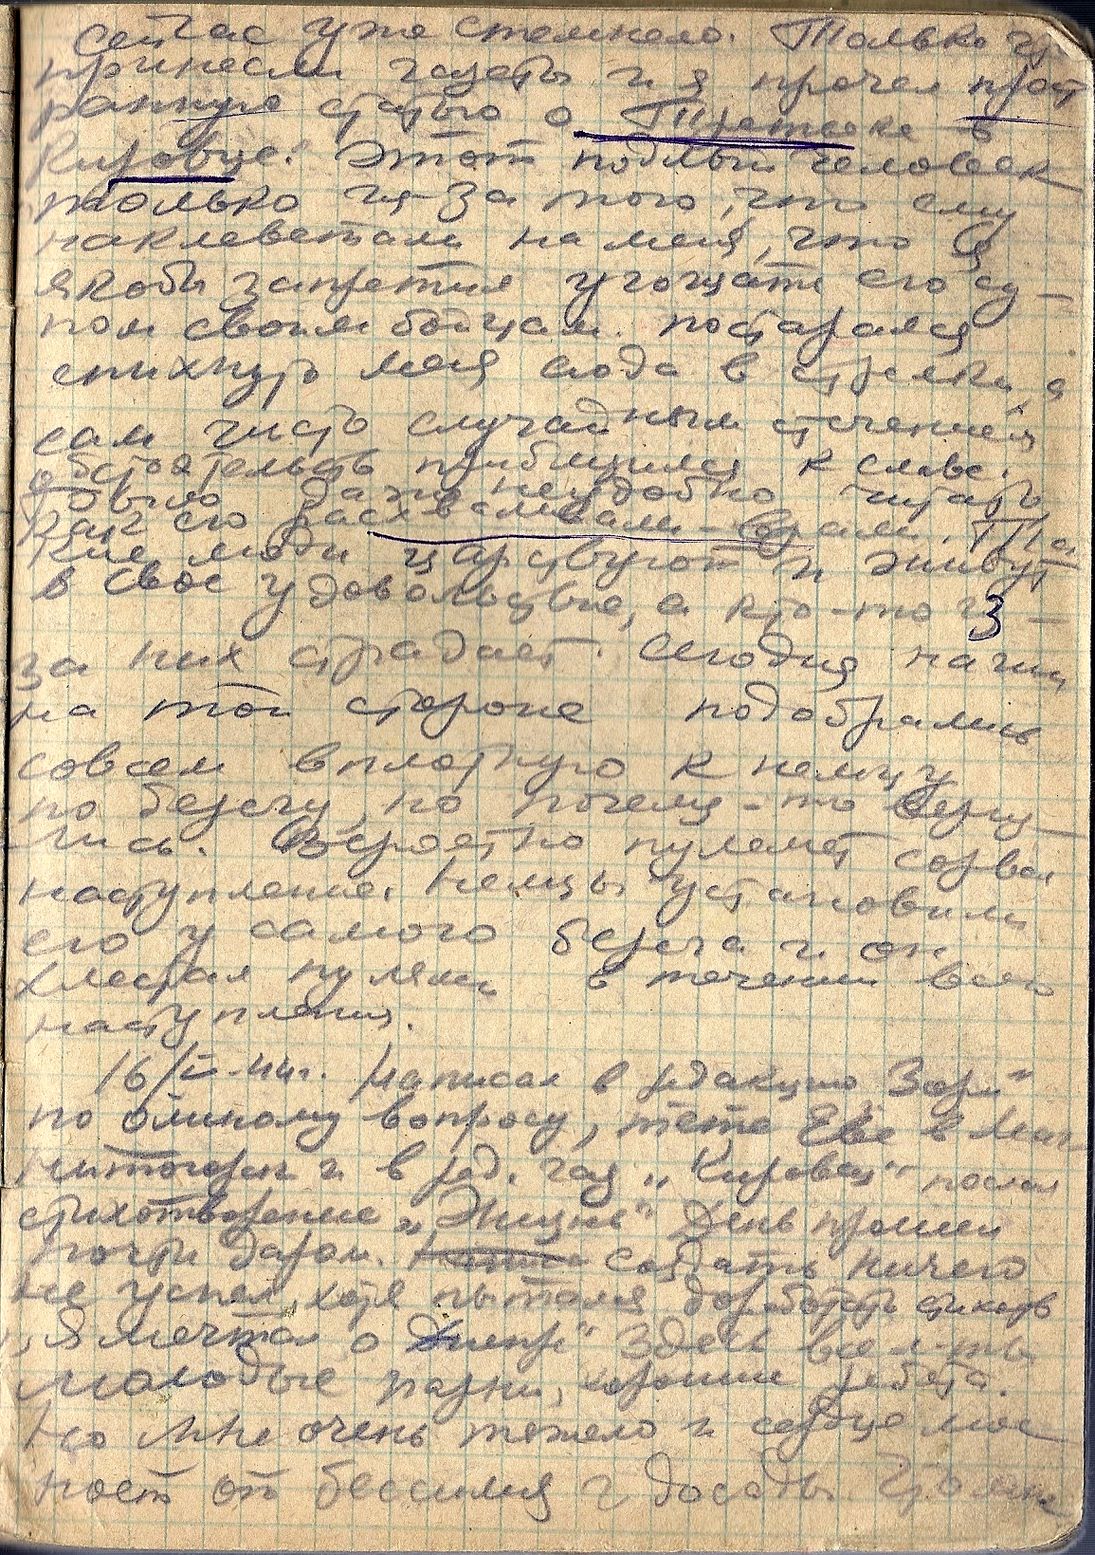 Сейчас уже стемнело. Только что
принесли газеты и я прочел прост
ранную статью о Третьяке в
Кировце." Этот подлый человек
только из-за того, что ему
наклеветали на меня, что я
якобы запретил угощать его су-
пом своим бойцам постарался
спихнуть меня сюда в стрелки, а
сам чисто случайным стечением
обстоятельств приблизился к славе.
было даже неудобно читать,
как его расхваливали - врали. Та
кие люди царствуют и живут
в свое удовольствие, а кто-то из-
за них страдает. Сегодня наши
на той стороне подобрались
совсем вплотную к немцу
по берегу, но почему-то верну-
лись. Вероятно пулемет сорвал
наступление. Немцы установили
его у самого берега и он
хлестал пулями в течении всего
наступления.
16/II-44г. Написал в редакцию Зори"
по личному вопросу, тете Еве в Маг
нитогорск и в ред. газ „Кировец" послал
стихотворение „Жизнь" День прошел
почти даром. создать ничего
не успел, хотя пытался доработать стихотв
„Я мечтал о Днепре" Здесь все
молодые парни, хорошие ребята.
Но мне очень тяжело и сердце мое
ноет от бессилия и досады что мне